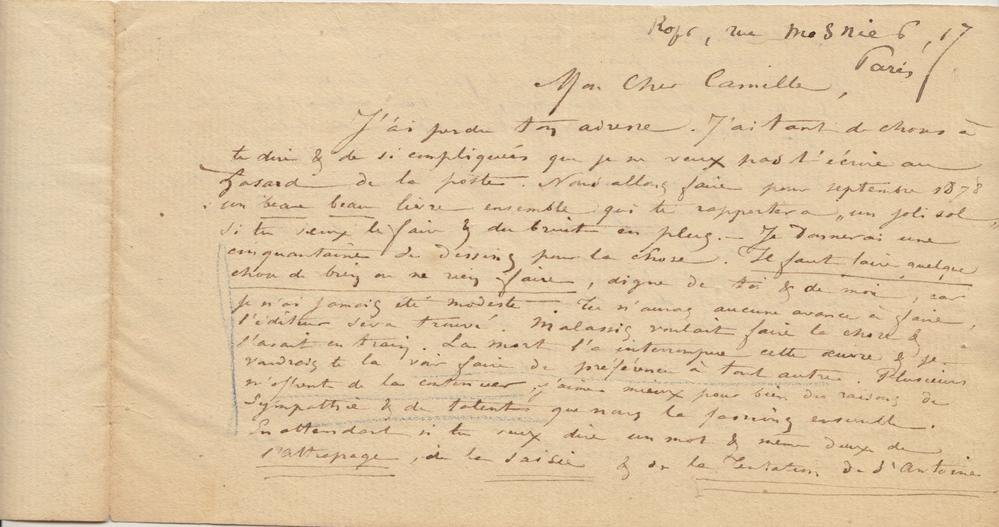 Rops, rue Mosnier, 17
Paris
Mon Cher Camille,
J'ai perdu ton adresse. J'ai tant de choses à
te dire & de si compliquées que je ne veux pas t'écrire au
hasard de la poste. Nous allons faire pour septembre 1878
un beau beau livre ensemble qui te rapportera „un joli sol„
si tu veux le faire & du bruit en plus. – Je donnerai une
cinquantaine de dessins pour la chose. Il faut faire quelque
chose de bien ou ne rien faire, digne de toi & de moi, car
je n'ai jamais été modeste – tu n'auras aucune avance à faire,
l'éditeur sera trouvé. Malassis voulait faire la chose &
l'avait en train. La mort l'a interrompue cette œuvre & je
voudrais te la voir faire de préférence à tout autre. Plusieurs
m'offrent de la continuer, j'aime mieux pour bien des raisons de
Sympathie & de talents que nous la fassions ensemble.
En attendant si tu veux dire un mot & même deux de
l'attrapage, de la saisie & de la Tentation de St Antoine